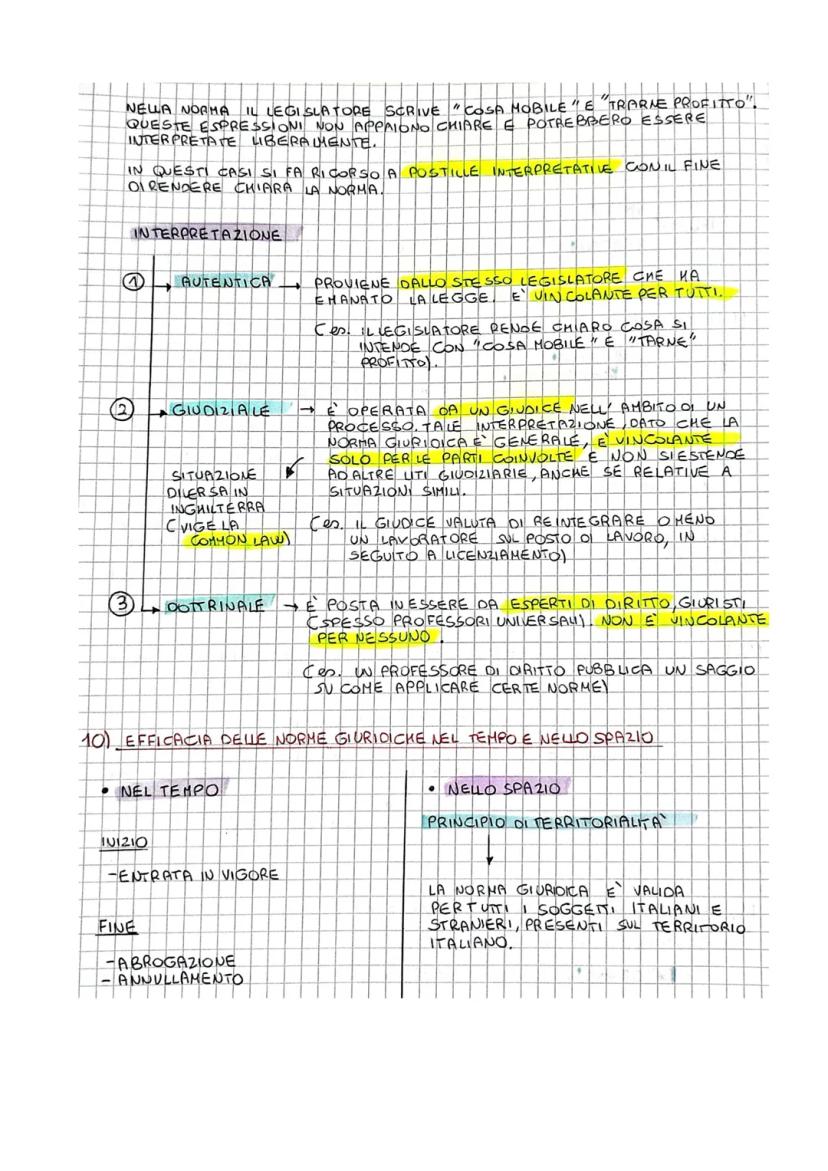 NELLA NORMA IL LEGISLATORE SCRIVE "COSA MOBILE" E "TRARNE PROFITTO".
QUESTE ESPRESSIONI NON APPAIONO CHIARE E POTREBBERO ESSERE
INTERPRETATE LIBERAMENTE.
IN QUESTI CASI SI FA RICORSO A POSTILLE INTERPRETATIVE CON IL FINE
DI RENDERE CHIARA LA NORMA.
INTERPRETAZIONE
1 → AUTENTICA → PROVIENE DALLO STESSO LEGISLATORE CHE HA
EMANATO LA LEGGE. E' VINCOLANTE PER TUTTI.
(es. IL LEGISLATORE RENDE CHIARO COSA SI
INTENDE CON "COSA MOBILE" E "TARNE"
PROFITTO).
2 → GIUDIZIALE → È OPERATA DA UN GIUDICE NELL'AMBITO DI UN
PROCESSO. TALE INTERPRETAZIONE, DATO CHE LA
NORMA GIURIDICA E' GENERALE, E' VINCOLANTE
SOLO PER LE PARTI COINVOLTE E NON SI ESTENDE
AD ALTRE LITI GIUDIZIARIE, ANCHE SE RELATIVE A
SITUAZIONI SIMILI.
SITUAZIONE
DIVERSA IN
INGHILTERRA
(VIGE LA
COMMON LAW)
(es. IL GIUDICE VALUTA DI REINTEGRARE O MENO
UN LAVORATORE SUL POSTO DI LAVORO, IN
SEGUITO A LICENZIAMENTO)
3 → DOTTRINALE → È POSTA IN ESSERE DA ESPERTI DI DIRITTO, GIURISTI
(SPESSO PROFESSORI UNIVERSALI). NON E' VINCOLANTE
PER NESSUNO.
(es. UN PROFESSORE DI DIRITTO PUBBLICA UN SAGGIO
SU COME APPLICARE CERTE NORME)
10) EFFICACIA DELLE NORME GIURIDICHE NEL TEMPO E NELLO SPAZIO
• NEL TEMPO
INIZIO
-ENTRATA IN VIGORE
FINE
-ABROGAZIONE
- ANNULLAMENTO
• NELLO SPAZIO
PRINCIPIO DI TERRITORIALITA'
LA NORMA GIURIDICA E' VALIDA
PER TUTTI I SOGGETTI ITALIANI E
STRANIERI, PRESENTI SUL TERRITORIO
ITALIANO.